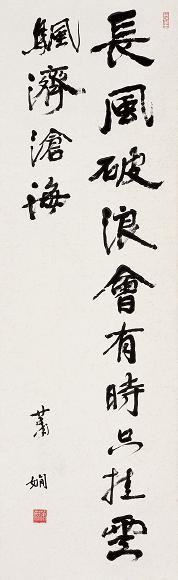 長風破浪會有時直挂雲
颿濟滄海
蕭嫻